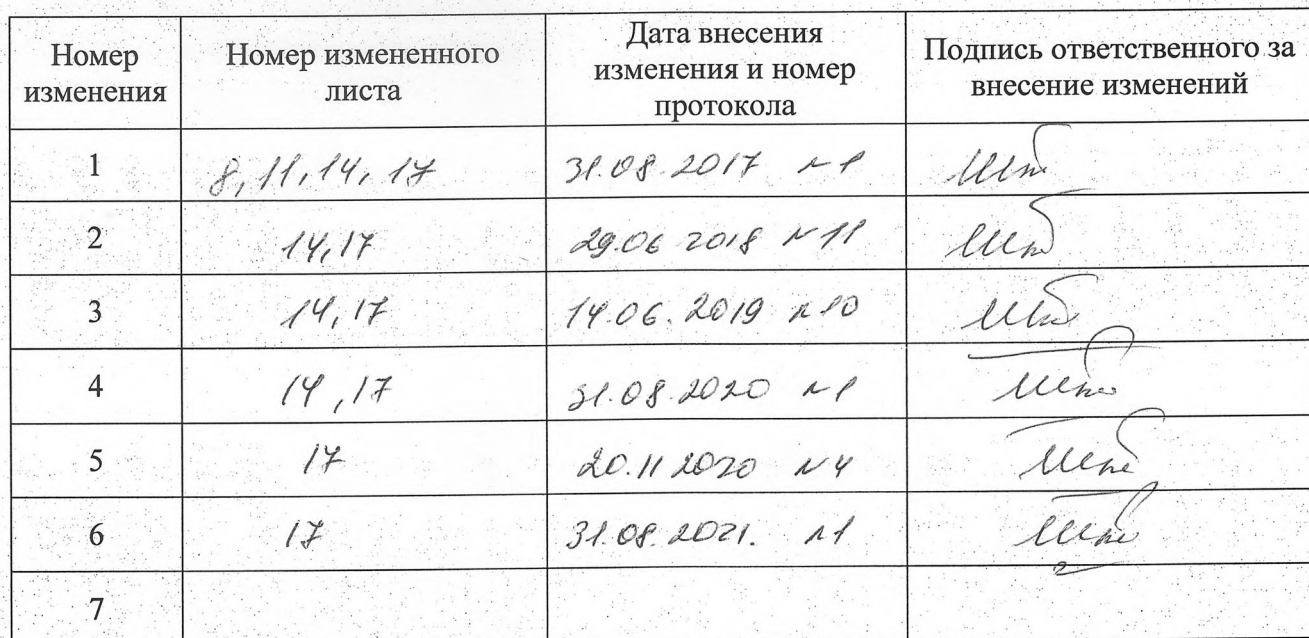 Номер изменения | Номер измененного листа | Дата внесения изменения и номер протокола | Подпись ответственного за внесение изменений
1 | 8, 11, 14, 17 | 31.08.2017 №1
2 | 14, 17 | 29.06 2018 №11
3 | 14, 17 | 14.06.2019 №10
4 | 14, 17 | 31.08.2020 №1
5 | 17 | 20.11 2020 №4
6 | 17 | 31.08.2021. №1
7